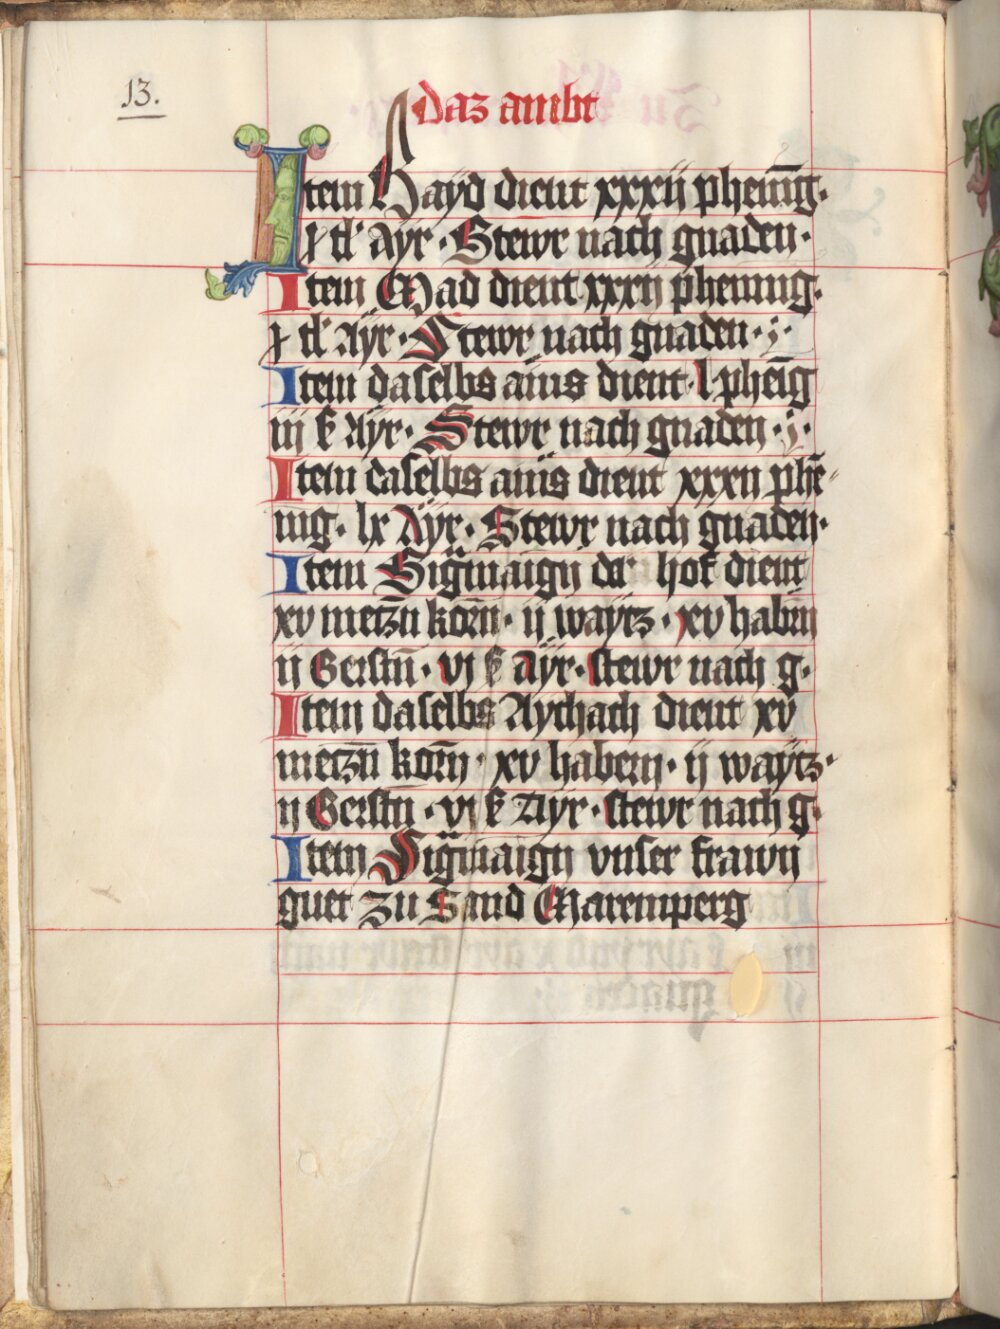 13.
daz ambt
Item Hayd dient xxxij phenīg·
x tl̄ ayr · Stewr nach gnaden ·
Item Mad dient xxxij phennig·
x tl̄ Ayr · Stewr nach gnaden ·
Item daselbs ains dient · l · pheīg
iij ß Ayr · Stewr nach gnaden ·
Item daselbs ains dient xxxij phē
nig · lx Ayr · Stewr nach gnaden ·
Item Sigmaign der hof dient
xv metzn̄ korn̄ · ij waytz · xv habrn̄
ij Gerstn̄ · vj ß ayr · stewr nach g·
Item daselbs Aychach dient xv
metzn̄ korn̄ · xv habern · ij waytz ·
ij Gerstn̄ · vj ß Ayr · stewr nach g·
Item Sigmaign vnser frawn
guet zu Sand Maremperg